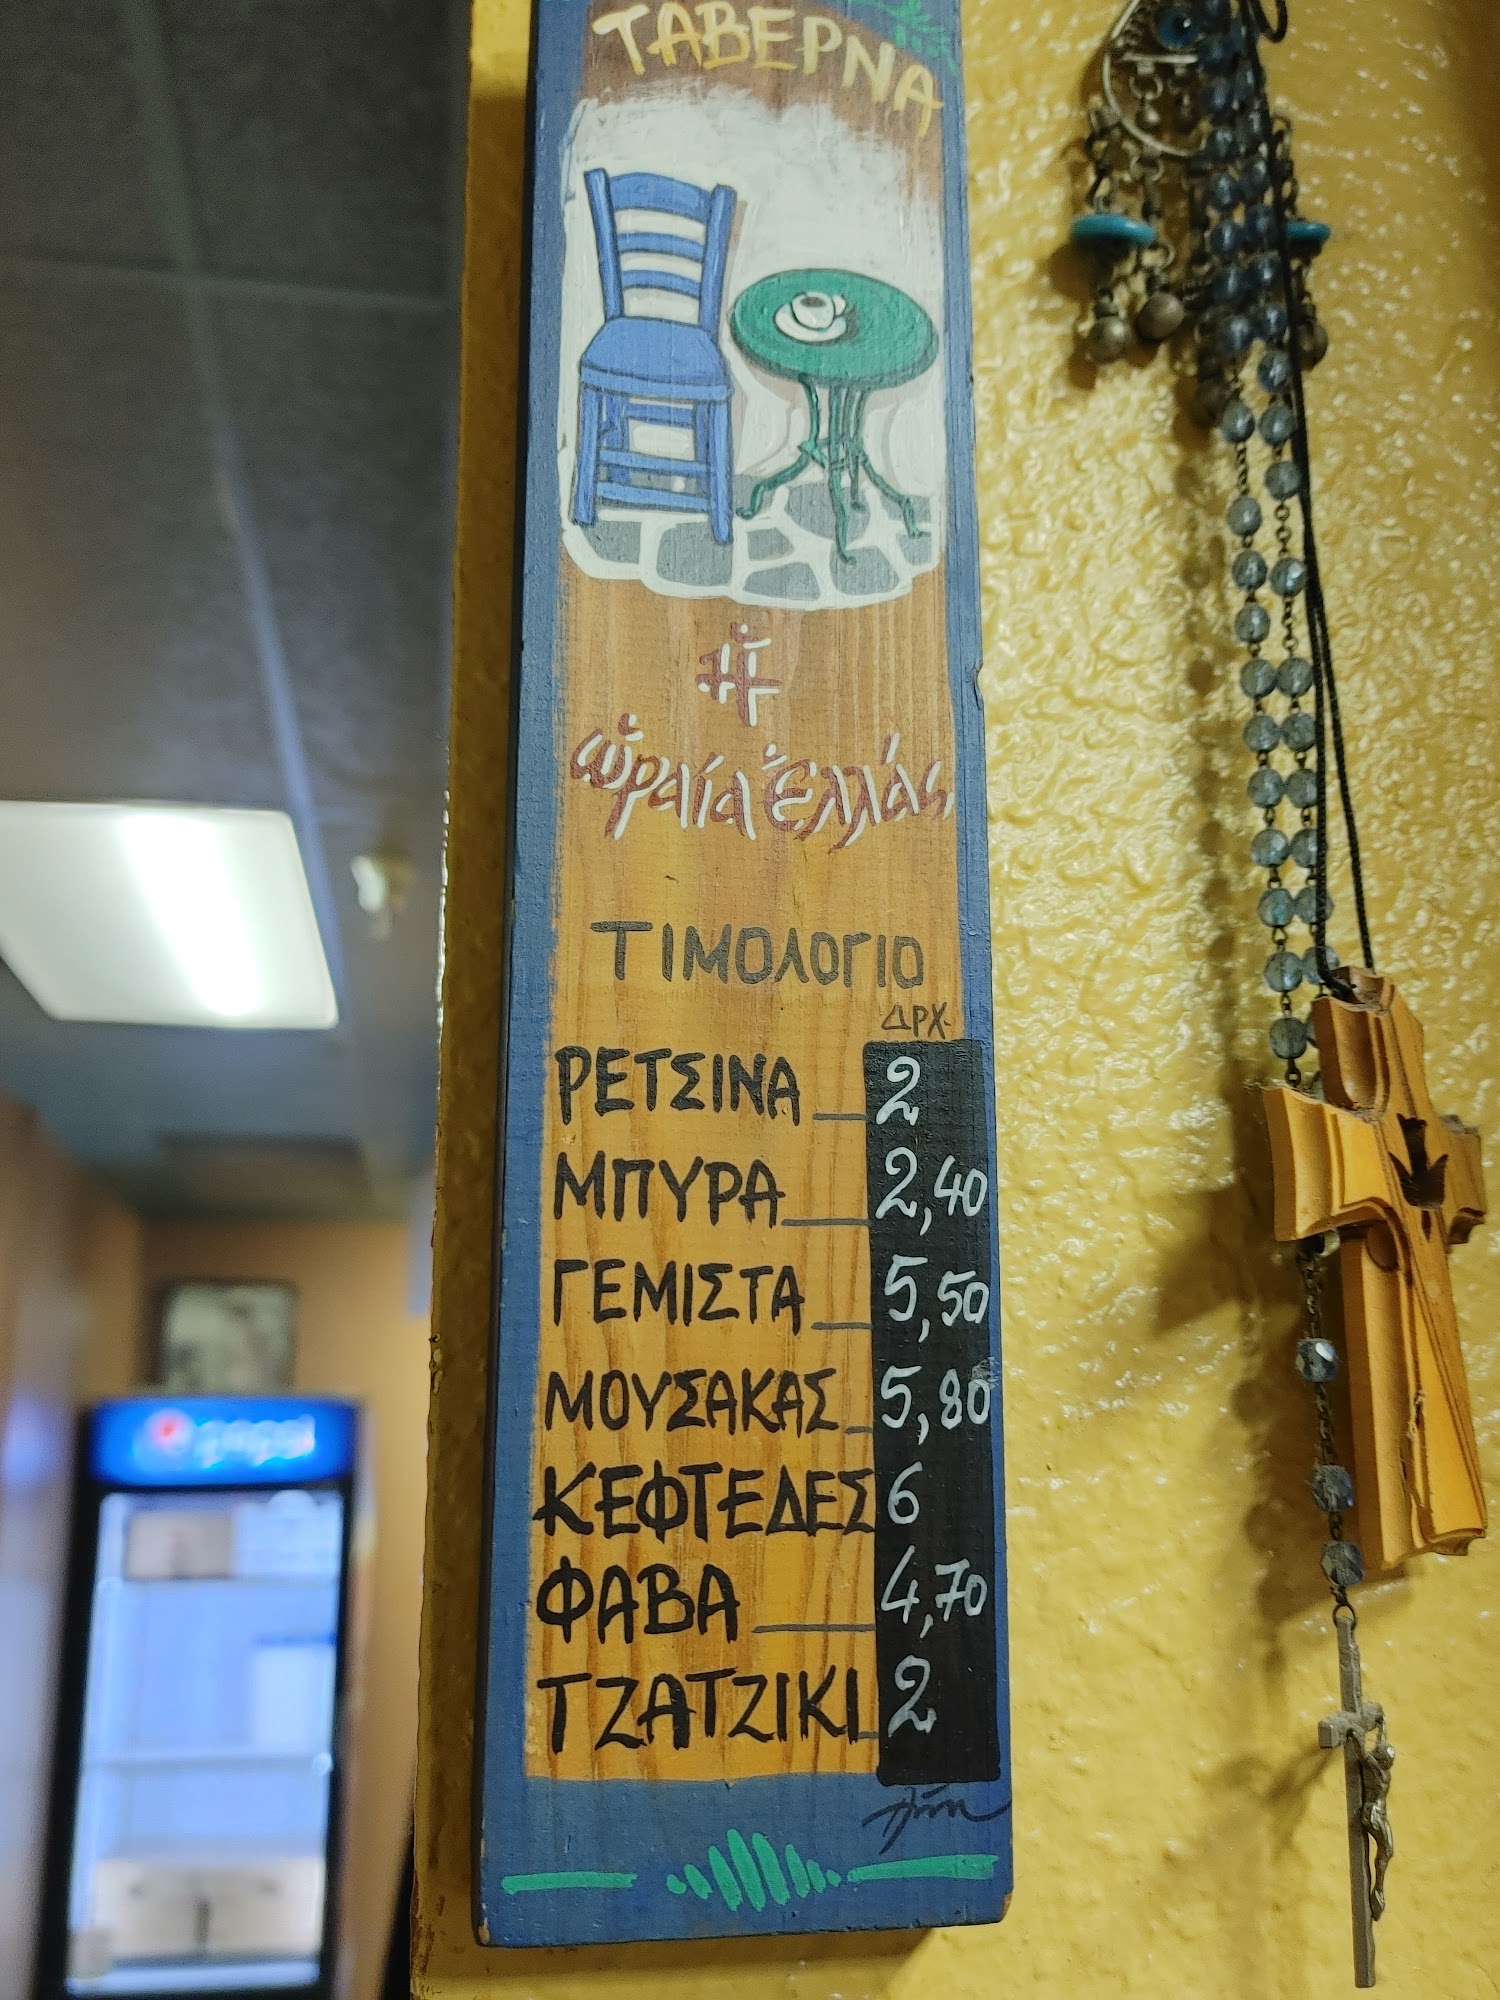 ΤΑΒΕΡΝΑ
Ἡ
ὡραία Ἑλλάς
ΤΙΜΟΛΟΓΙΟ
ΔΡΧ.
ΡΕΤΣΙΝΑ 2
ΜΠΥΡΑ 2,40
ΓΕΜΙΣΤΑ 5,50
ΜΟΥΣΑΚΑΣ 5,80
ΚΕΦΤΕΔΕΣ 6
ΦΑΒΑ 4,70
ΤΖΑΤΖΙΚΙ 2
pepsi